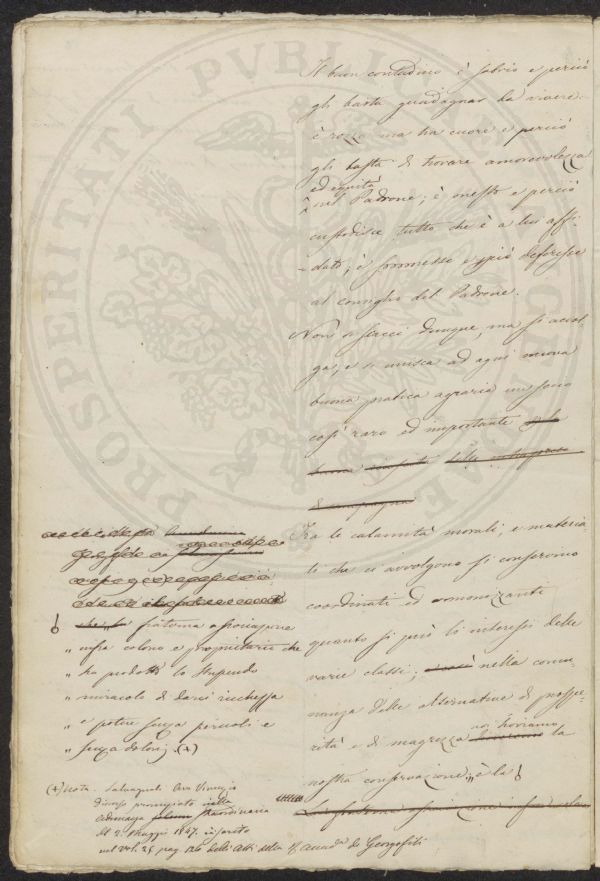 Il buon contadino è sobrio e perciò
gli basta guadagnar da vivere.
è rozzo ma ha cuore e perciò
gli basta di trovare amorevolezza
ed equità
nel Padrone; è onesto e perciò
custodisce tutto che è a lui affi-
dato; è sommesso e perciò deferisce
ai consigli del Padrone.
Non si scacci dunque, ma si accol-
ga, e si unisca ad ogni nuova
buona pratica agraria un socio
così raro ed importante
Tra le calamità morali, e materia
li che ci avvolgono si conservino
coordinati ed armonizzanti
quanto si può li interessi delle
varie classi; nella comu-
nanza delle alternative di prosper-
rità e di magrezza noi troviamo la
nostra conservazione, „ è la
che la fraterna associazione
„ infra colono e proprietario che
„ ha prodotto lo stupendo
„ miracolo di darci ricchezza
„ e potere senza pericoli e
„ senza dolori; (+)
(+) nota. Salvagnoli Avv. Vincenzio
Discorso pronunziato nella
Adunanza straordinaria
del 2. Maggio 1847. inserito
nel Vol. 25 pag. delli Atti della I. Accad.a de Georgofili
PROSPERITATI PVBLICAE AVGENDAE